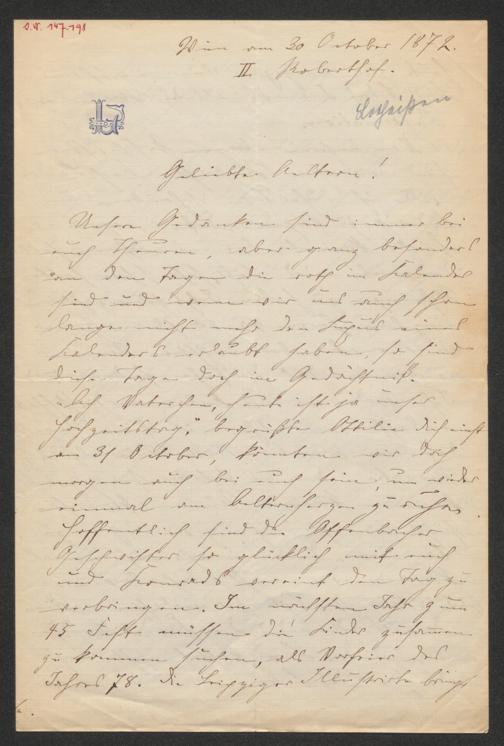 S.N. 147.198
Wien am 30 October 1872.
II. Roberthof.
Lotheißen
Geliebte Aeltern!
Unsere Gedanken sind immer bei
euch Theuren, aber ganz besonders
an den Tagen die roth im Kalender
sind und wenn wir uns auch schon
lange nicht mehr den Luxus eines
Kalenders erlaubt haben, so sind
diese Tage doch im Gedächtniß.
"Ach Vaterchen, heute ist ja unser
Hochzeitstag," begrüßte Ottilie dich nicht
am 31 October, könnten wir doch
morgen auch bei euch sein, um wieder
einmal am Aelternherzen zu ruhen.
Hoffentlich sind die Offenbacher
Geschwister so glücklich mit euch
und Konrads vereint den Tag zu
verbringen. Im nächsten Jahr zum
45 Fest müssen die Kinder zusammen
zu kommen suchen, als Vorfeier des
Jahres 78. Die Leipziger Illustrirte bringt